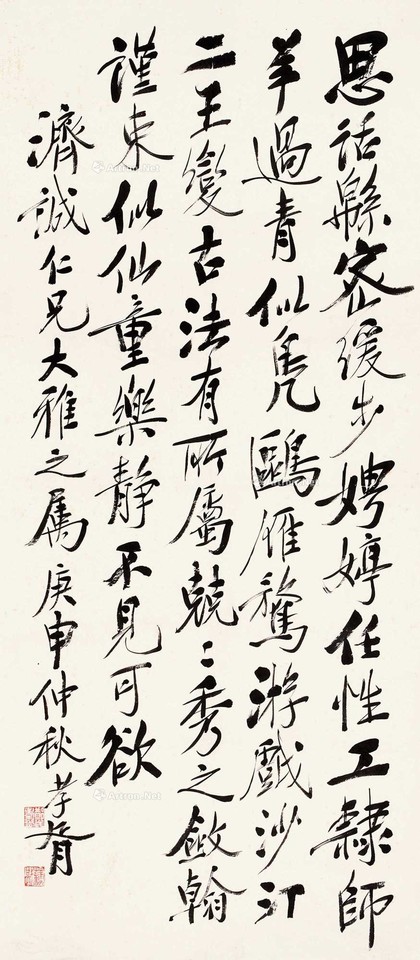 思話緜密緩步娉婷任性工隸師
羊過青似鳧鷗雁鶩游戲沙汀
二王變古法有所屬兢〻秀之斂翰
謹束似仙童樂靜不見可欲
濟誠仁兄大雅之属庚申仲秋孝胥
Artron.Net
Artron.Net